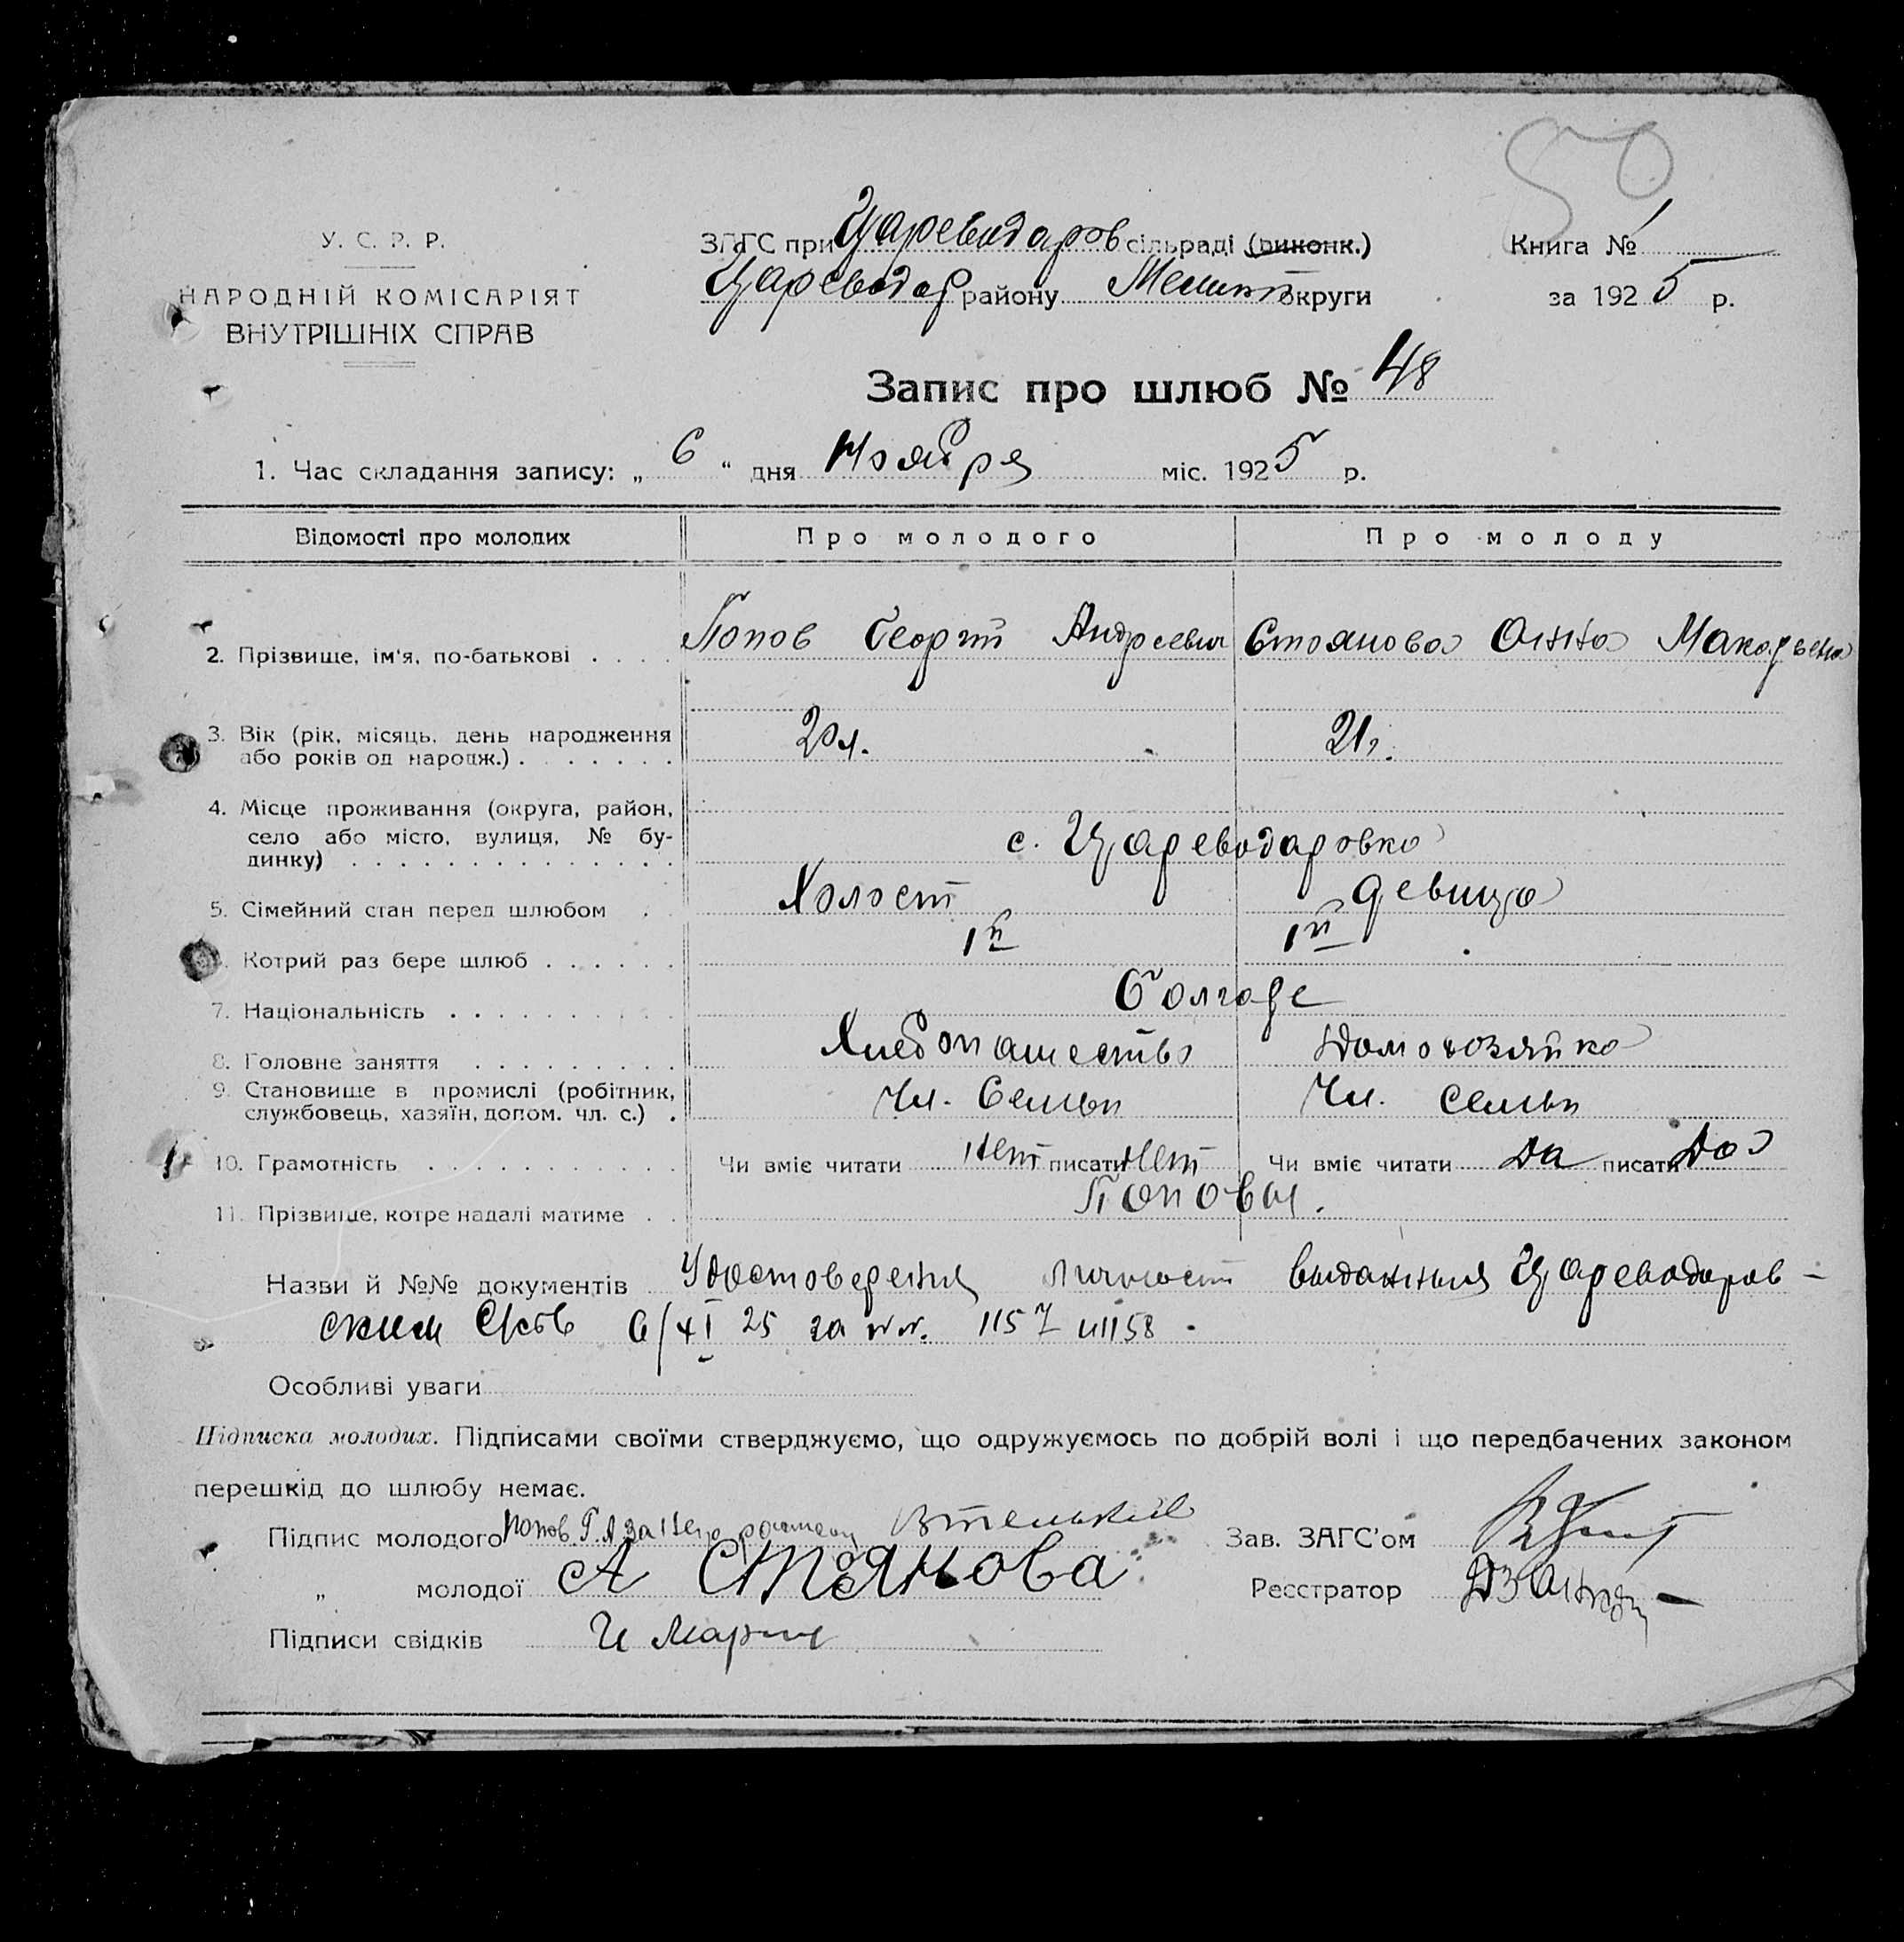 50
У. С. Р. Р.
НАРОДНІЙ КОМІСАРІЯТ
ВНУТРІШНІХ СПРАВ
ЗАГС при Цареводаров сільраді (виконк.)
Цареводар району Мелит округи
Книга № 1
за 1925 р.
Запис про шлюб № 48
1. Час складання запису: „ 6 “ дня Ноября міс. 1925 р.
Відомості про молодих Про молодого Про молоду
2. Прізвище, ім'я, по-батькові . . . . Попов Георгий Андреевич Стоянова Анна Макарьевна
3. Вік (рік, місяць, день народження
або років од народж.) . . . . . . . 20 л. 21 г.
4. Місце проживання (округа, район,
село або місто, вулиця, № бу-
динку) . . . . . . . . . . . . . . с. Цареводаровка
5. Сімейний стан перед шлюбом . . Холост девица
6. Котрий раз бере шлюб . . . . . . 1й 1й
7. Національність . . . . . . . . . . Болгаре
8. Головне заняття . . . . . . . . . Хлебопашество Домохозяйка
9. Становище в промислі (робітник,
службовець, хазяїн, допом. чл. с.) . Чл. Семьи Чл. семьи
10. Грамотність . . . . . . . . . . . Чи вміє читати нет писати нет Чи вміє читати Да писати Да
11. Прізвище, котре надалі матиме . . Поповы.
Назви й №№ документів Удостоверения личност выданныя Цареводаров-
ским С/сов 6/XI 25 за №№. 1157 и 1158.
Особливі уваги
Підписка молодих. Підписами своїми стверджуємо, що одружуємось по добрій волі і що передбачених законом
перешкід до шлюбу немає.
Підпис молодого Попов. Г. А за него
Зав. ЗАГС'ом
„ молодої А Стоянова
Реєстратор
Підписи свідків И Марин